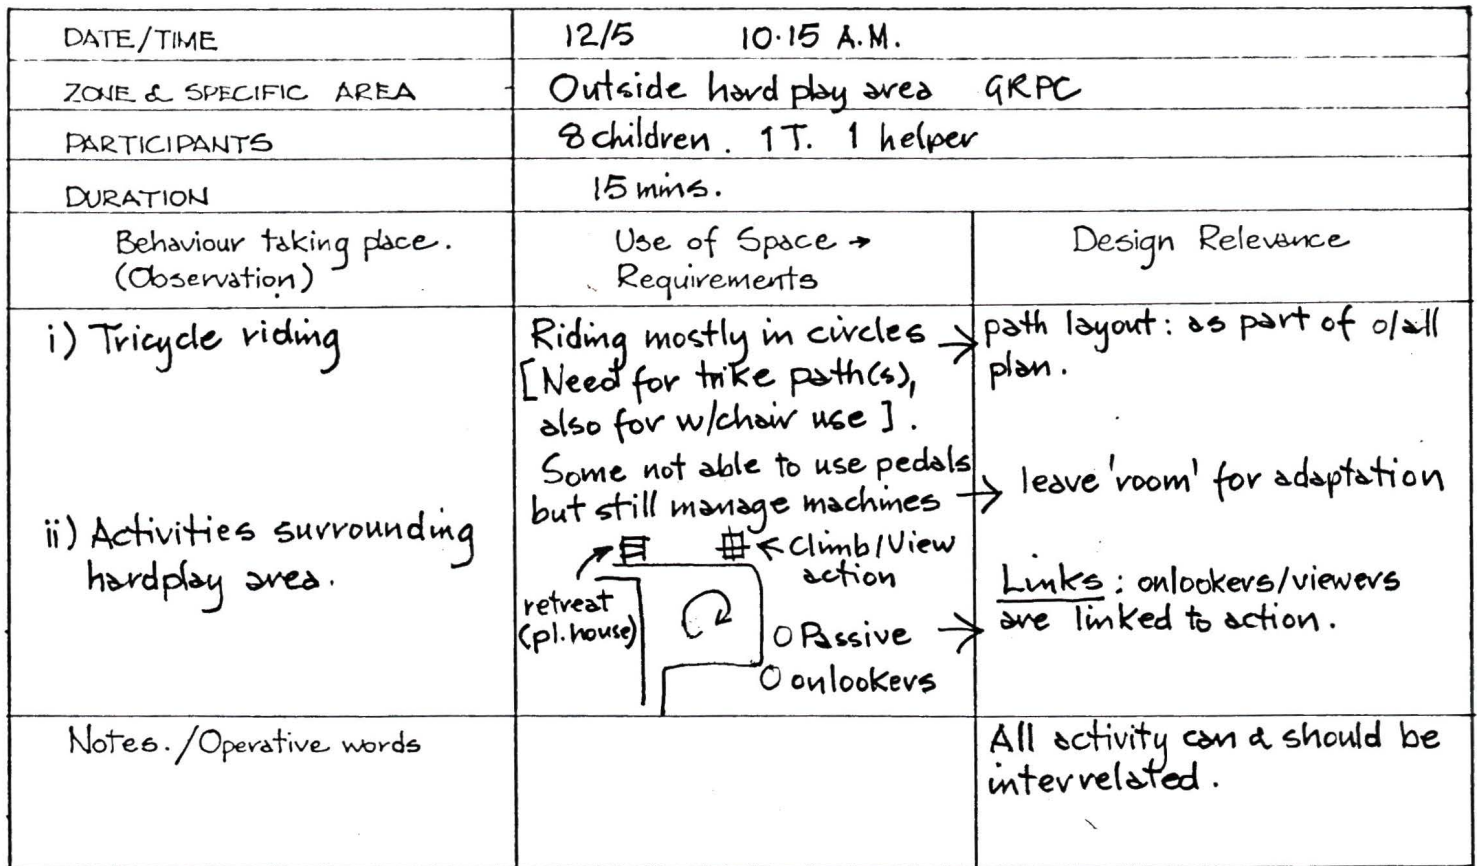 DATE/TIME
12/5 10·15 A.M.
ZONE & SPECIFIC AREA
Outside hard play area GRPC
PARTICIPANTS
8 children. 1 T. 1 helper
DURATION
15 mins.
Behaviour taking place.
(Observation)
Use of Space →
Requirements
Design Relevance
i) Tricycle riding
Riding mostly in circles →
[Need for trike path(s),
also for w/chair use].
path layout: as part of o/all
plan.
Some not able to use pedals
but still manage machines →
leave 'room' for adaptation
ii) Activities surrounding
hardplay area.
← Climb/View
action
retreat
(pl. house)
Passive →
onlookers
Links: onlookers/viewers
are linked to action.
Notes./Operative words
All activity can & should be
interrelated.